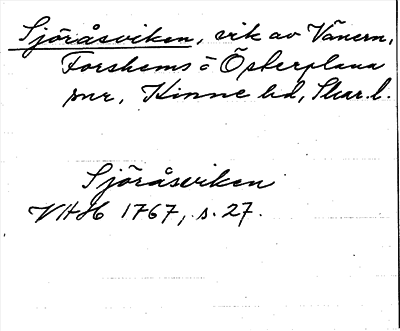 Sjöråsviken, vik av Vänern,
Forshems o Österplana
snr, Kinne hd, Skar. l.
Sjöråsviken
VAH 1767, s. 27.